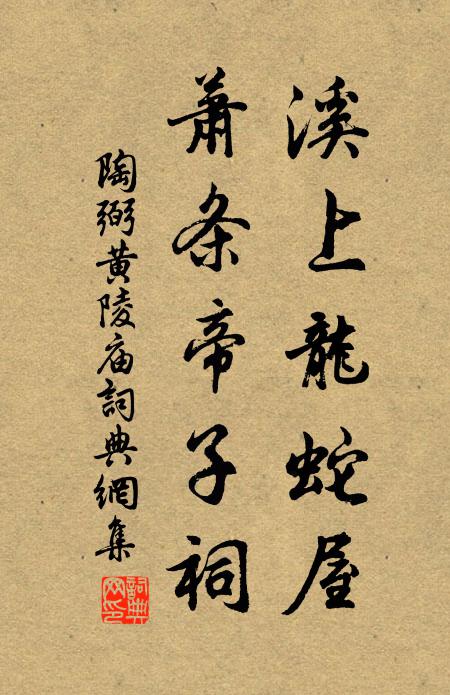 溪上龍蛇屋
蕭条帝子祠
陶弼黄陵庙詞典網集
詞典网印